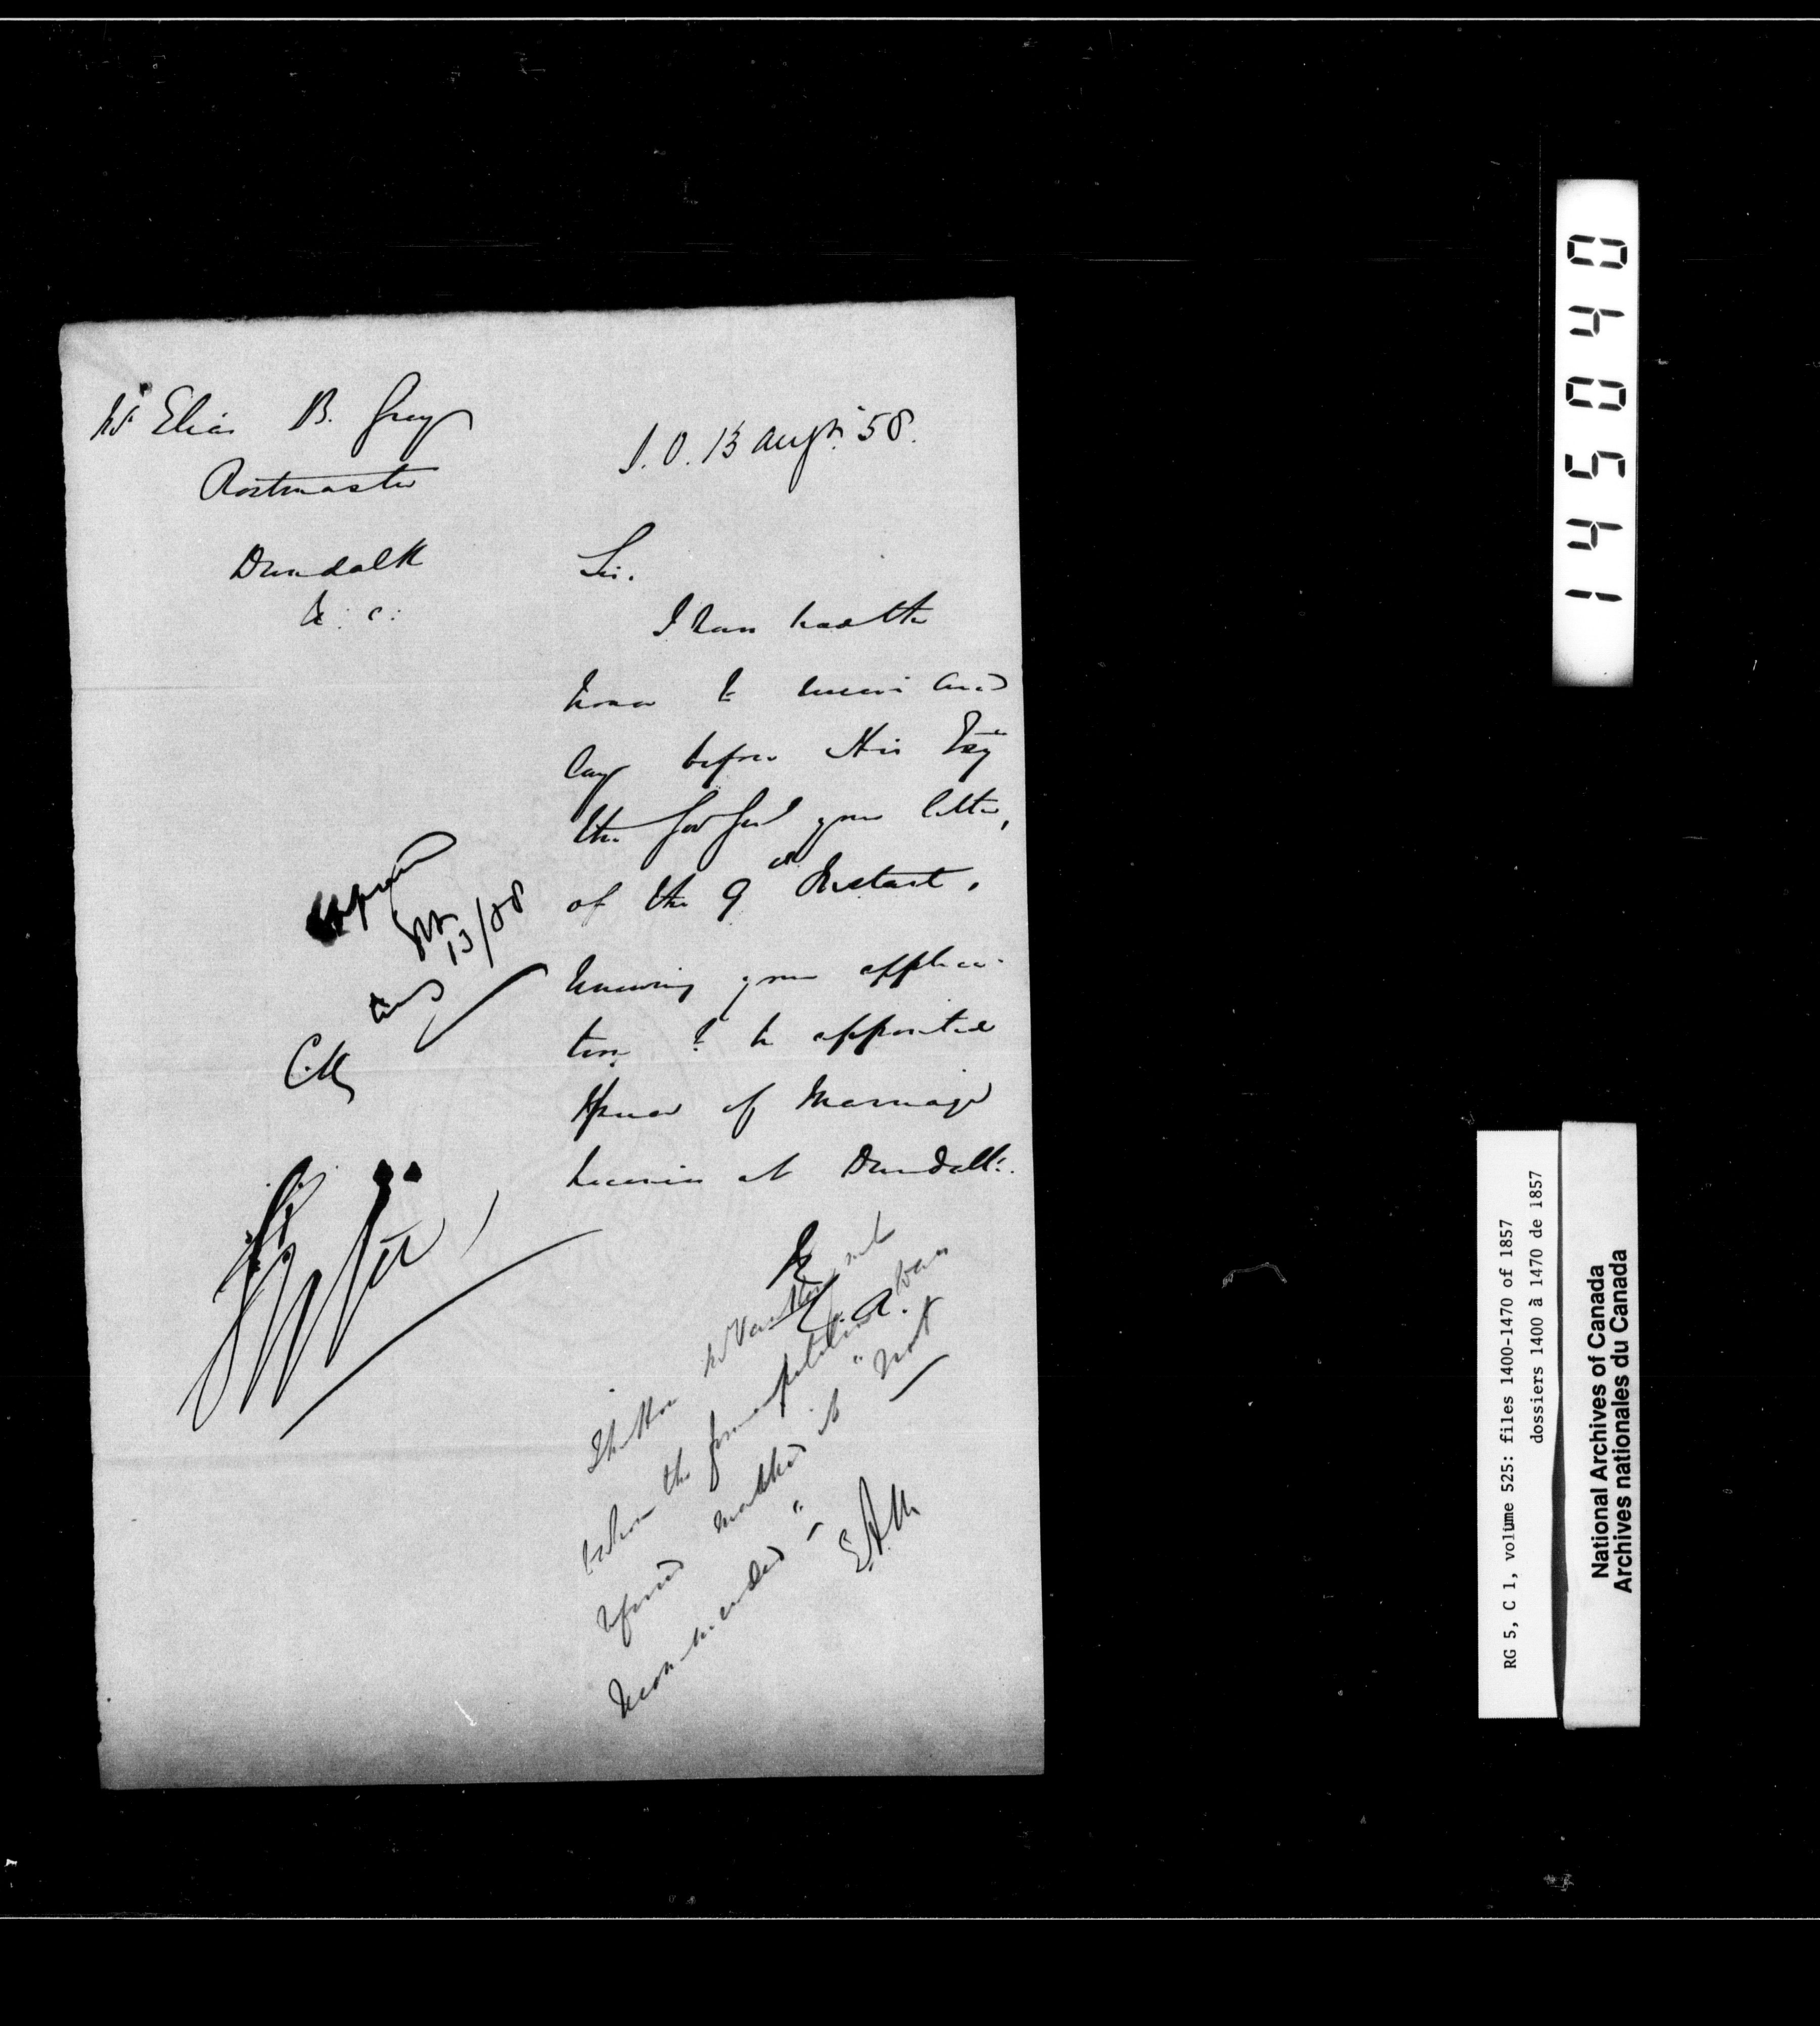 Mr Elias B. Gray
Postmaster
Dundalk
U. C.
S. O. 13 Augt. 58.
Sir.
I have had the
honor to receive and
lay before His Exy
the Gov Genl your letter,
of the 9th Instant,
renewing your applica-
tion to be appointed
Issuer of Marriage
Licenses at Dundalk.
13/58
E. A.
The Hon Mr Vankoughnet
to whom the former petition was
referred marked it "not
recommended"
E.A.M
145040
RG 5, C 1, volume 525: files 1400-1470 of 1857
dossiers 1400 à 1470 de 1857
National Archives of Canada
Archives nationales du Canada